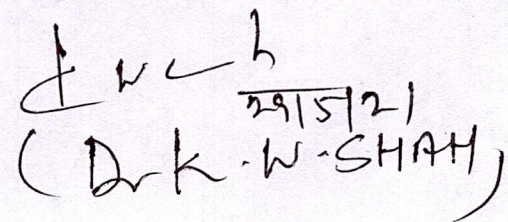 29/5/21
(Dr K.W.SHAH)